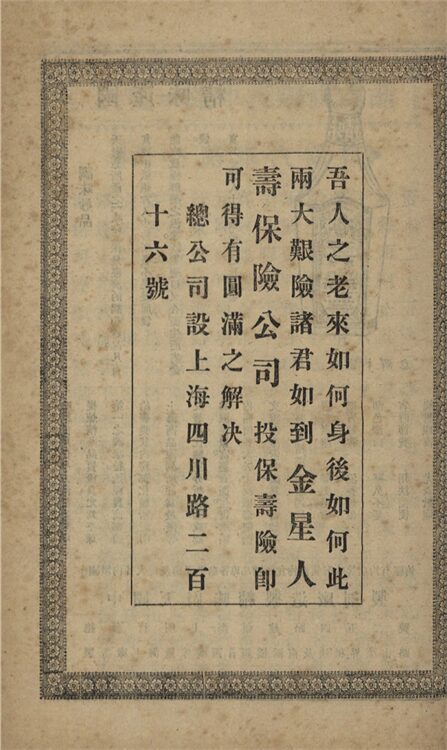 吾人之老來如何身後如何此
兩大艱險諸君如到金星人
壽保險公司投保壽險卽
可得有圓滿之解决
總公司設上海四川路二百
十六號